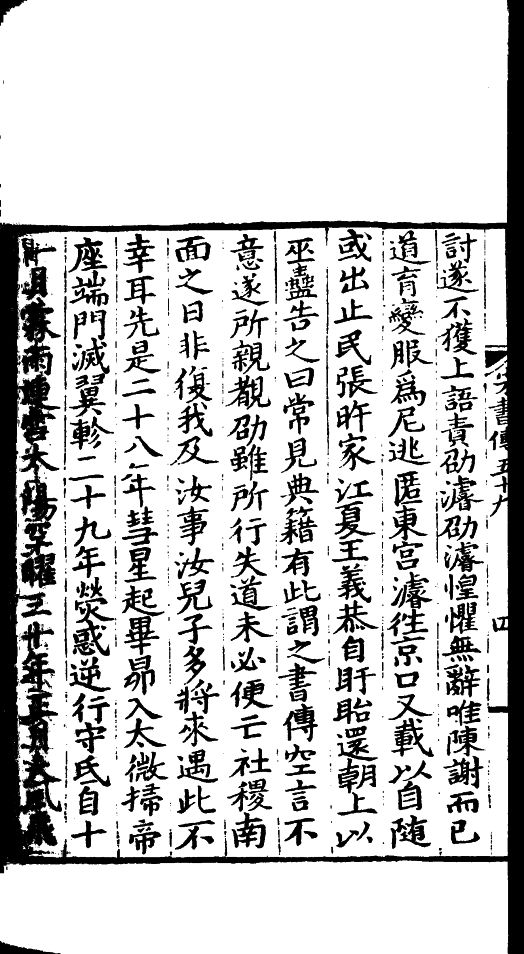 宋書傳五十九　四
討遂不獲上詰責劭濬劭濬惶懼無辭唯陳謝而已
道育變服為尼逃匿東宮濬往京口又載以自随
或出止民張旿家江夏王義恭自盱眙還朝上以
巫蠱告之曰常見典籍有此謂之書傳空言不
意遂所親覩劭雖所行失道未必便亡社稷南
面之日非復我及汝事汝兒子多將來遇此不
幸耳先是二十八年彗星起畢昴入太微掃帝
座端門滅翼軫二十九年熒惑逆行守氐自十
一月霖雨連雪太陽罕曜三十年正月大風飛